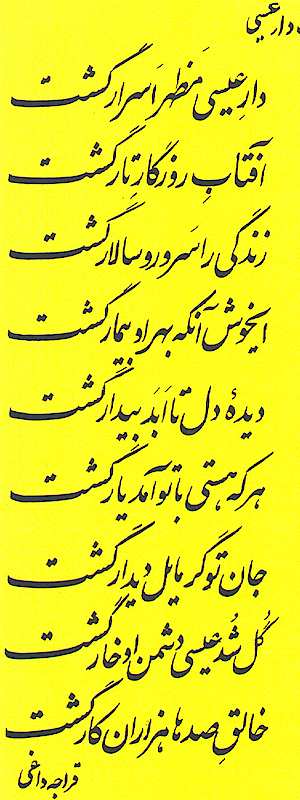 دار عیسی
دارِ عیسی مَظهرِ اَسرار گشت
آفتابِ روزگارِ تار گشت
زندگی را سَرور و سالار گشت
ایخوش آنکه بهر او بیمار گشت
دیدهٔ دل تا اَبَد بیدار گشت
هر که هستی با تو آمد یار گشت
جان تو گر مایل دیدار گشت
گُل شُد عیسی دشمن او خار گشت
خالقِ صدها هزاران کار گشت
قراجه داغی